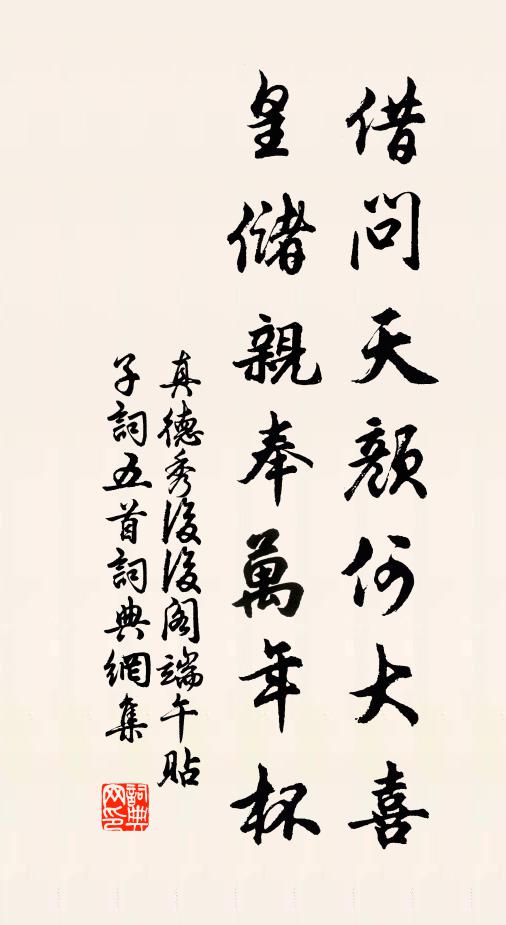 借問天顏何大喜
皇儲親奉萬年杯
真德秀後後閣端午貼
子詞五首詞典網集
詞典网印